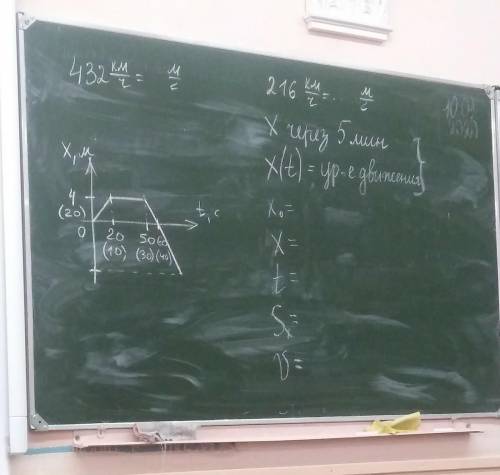 432 км/ч = м/с
216 км/ч = . . м/с
x через 5 мин
x(t) = ур-е движения
x₀ =
x =
t =
Sₓ =
v =
x, м
4
(20)
0
20
(10)
50
(30)
(40)
t, с